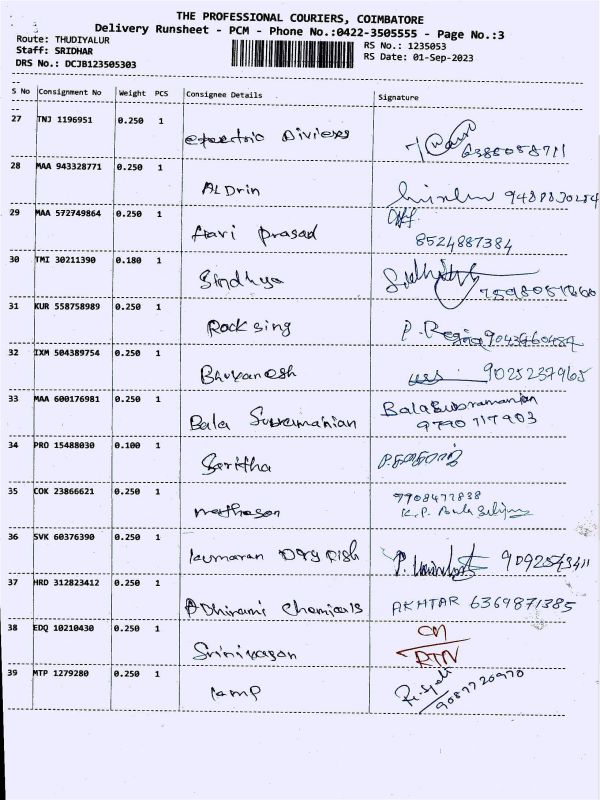 THE PROFESSIONAL COURIERS, COIMBATORE
Delivery Runsheet - PCM - Phone No.:0422-3505555 - Page No.:3
Route: THUDIYALUR
Staff: SRIDHAR
DRS No.: DCJB123505303
RS No.: 1235053
RS Date: 01-Sep-2023
S No Consignment No Weight PCS Consignee Details Signature
27 TNJ 1196951 0.250 1
28 MAA 943328771 0.250 1 ALDrin
29 MAA 572749864 0.250 1 Hari prasad 8524887384
30 TMI 30211390 0.180 1 Sindhya
31 KUR 558758989 0.250 1 Rock sing P. Regina
32 IXM 504389754 0.250 1 Bhuvanesh 9025237965
33 MAA 600176981 0.250 1 Bala Subramanian Balasubramanian
9790 117903
34 PRO 15488030 0.100 1
35 COK 23866621 0.250 1
36 SVK 60376390 0.250 1 kumaran
37 HRD 312823412 0.250 1 ADhirami chemicals AKHTAR 6369871385
38 EDQ 10210430 0.250 1 Srinivasan
RTN
39 MTP 1279280 0.250 1